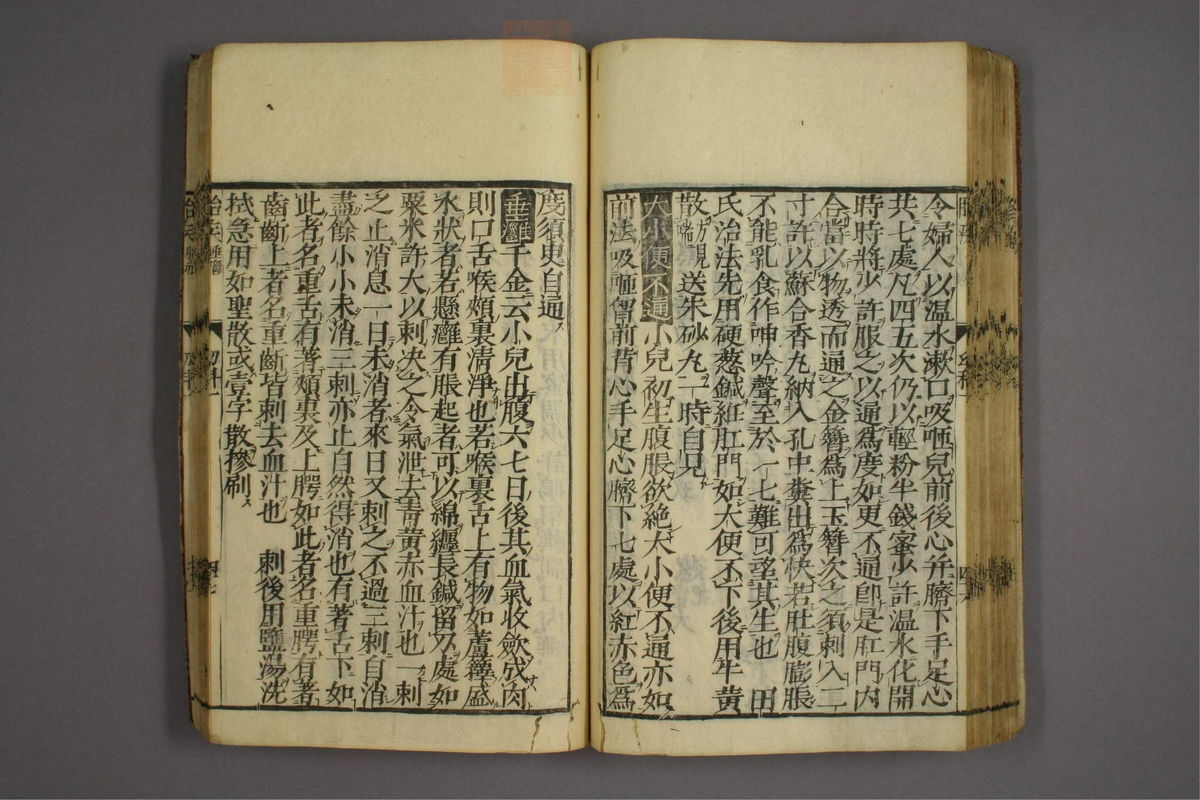 令婦人以温水漱口吸咂兒前後心并臍下手足心
共七處凡四五次仍以輕粉半錢蜜少許温水化開
時時將少許服之以通爲度如更不通卽是肛門内
合當以物透而通之金簪爲上玉簪次之須刺入二
寸許以蘇合香丸納入孔中糞出爲快若肚腹膨脹
不能乳食作呻吟聲至於一七難可望其生也 田
氏治法先用硬葱鍼紝肛門如大便不下後用牛黄
散方見喘 送朱砂丸一時自見
大小便不通 小兒初生腹脹欲絶大小便不通亦如
前法吸咂胷前背心手足心臍下七處以紅赤色爲
度須更自通
垂癰 千金云小兒出腹六七日後其血氣收歛成肉
則口舌喉頰裏淸淨也若喉裏舌上有物如蘆籜盛
水狀者若懸癰有脹起者可以綿纏長鍼留刃處如
粟米許大以刺決之令氣泄去青黄赤血汁也一刺
之止消息一日未消者來日又刺之不過三刺自消
盡餘小小未消三刺亦止自然得消也有著舌下如
此者名重舌有著頰裏及上腭如此者名重腭有著
齒齗上者名重齗皆刺去血汁也 刺後用鹽湯洗
拭急用如聖散或壹字散摻刷